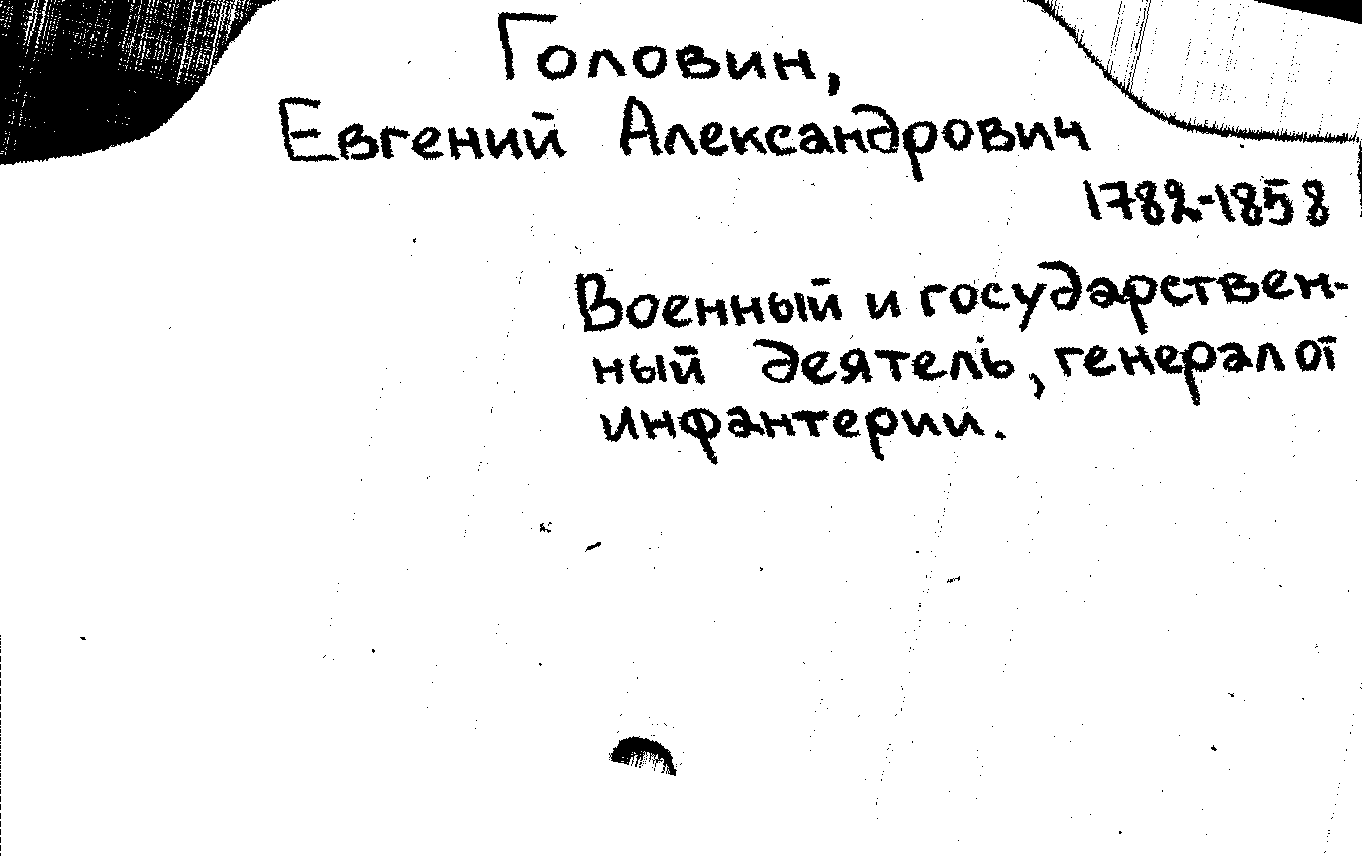 Головин,
Евгений Александрович
1782-1858
Военный и государствен-
ный деятель, генерал от
инфантерии.